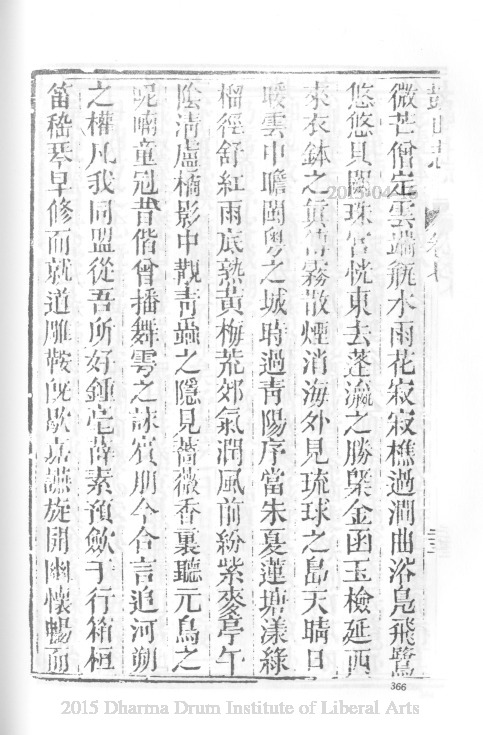 鼓山志 卷七
微芒僧定雲端觥水雨花寂寂樵過澗曲浴鳧飛鷺
悠悠貝闕珠宮恍東去蓬瀛之勝槩金函玉檢延西
來衣鉢之眞傳霧散煙消海外見琉球之島天晴日
暖雲中瞻閩粤之城時過靑陽序當朱夏蓮塘漾綠
榴徑舒紅雨底熟黃梅荒郊氣潤風前紛紫麥亭午
陰淸盧橘影中觀靑蟲之隱見薔薇香裏聽元鳥之
呢喃童冠昔偕曾播舞雩之詠賓朋今合言追河朔
之權凡我同盟從吾所好鍾壱薛素預斂于行箱桓
笛嵇琴早修而就道雕鞍旣歇嘉讌旋開幽懷暢而
366
2015 Dharma Drum Institute of Liberal Arts